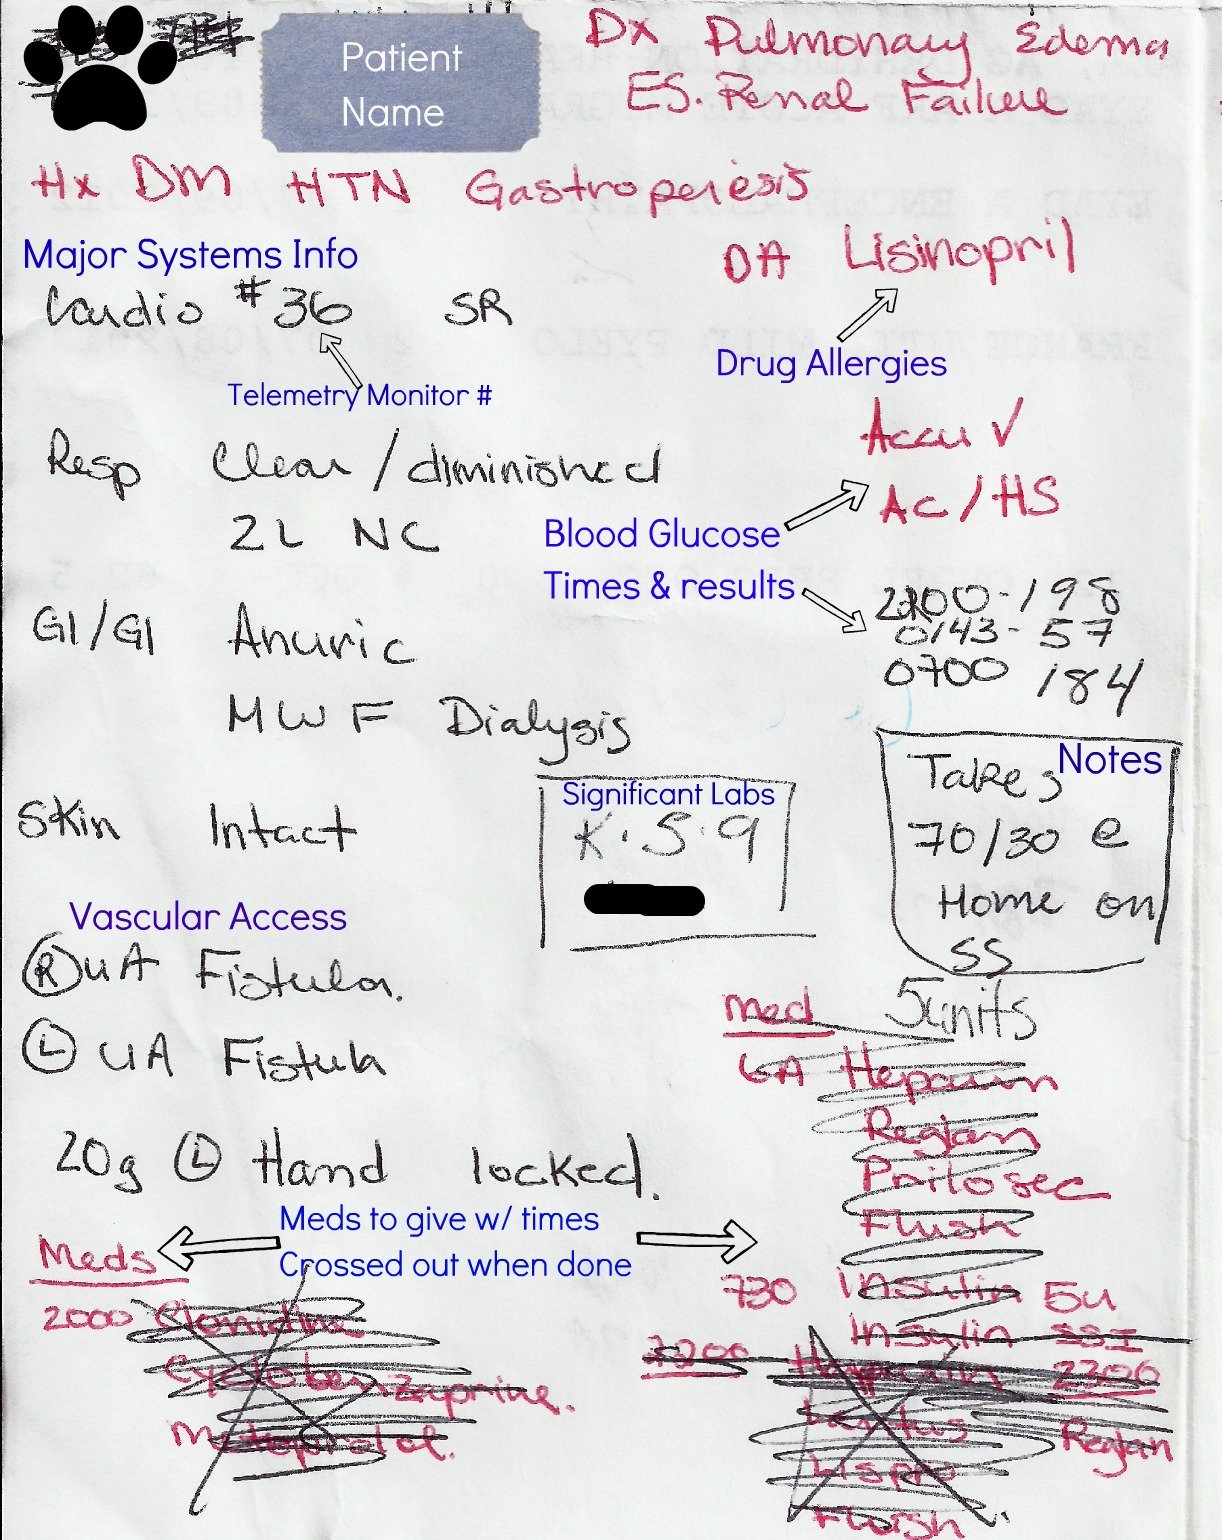 Patient
Name
Dx Pulmonary Edema
ES. Renal Failure
Hx DM HTN Gastroperesis
Major Systems Info
DA Lisinopril
Cardio #36 SR
Drug Allergies
Telemetry Monitor #
Accu √
Resp Clear / diminished
AC / HS
2L NC
Blood Glucose
Times & results
2200 - 198
0143 - 57
0700 184
GI/GI Anuric
MWF Dialysis
Notes
Takes
70/30 @
Home on
SS
5units
Significant Labs
K · 5.9
Skin Intact
Vascular Access
(R) UA Fistula.
(L) UA Fistula
20g (L) Hand locked.
Meds to give w/ times
Crossed out when done
Meds
2000 Clonidine
Cyclobenzaprine.
Metoprolol.
Med
6A Heparin
Reglan
Prilosec
Flush
730 Insulin 5u
Insulin SSI
2200 Heparin 2300
Lantus Reglan
Lispro
Flush